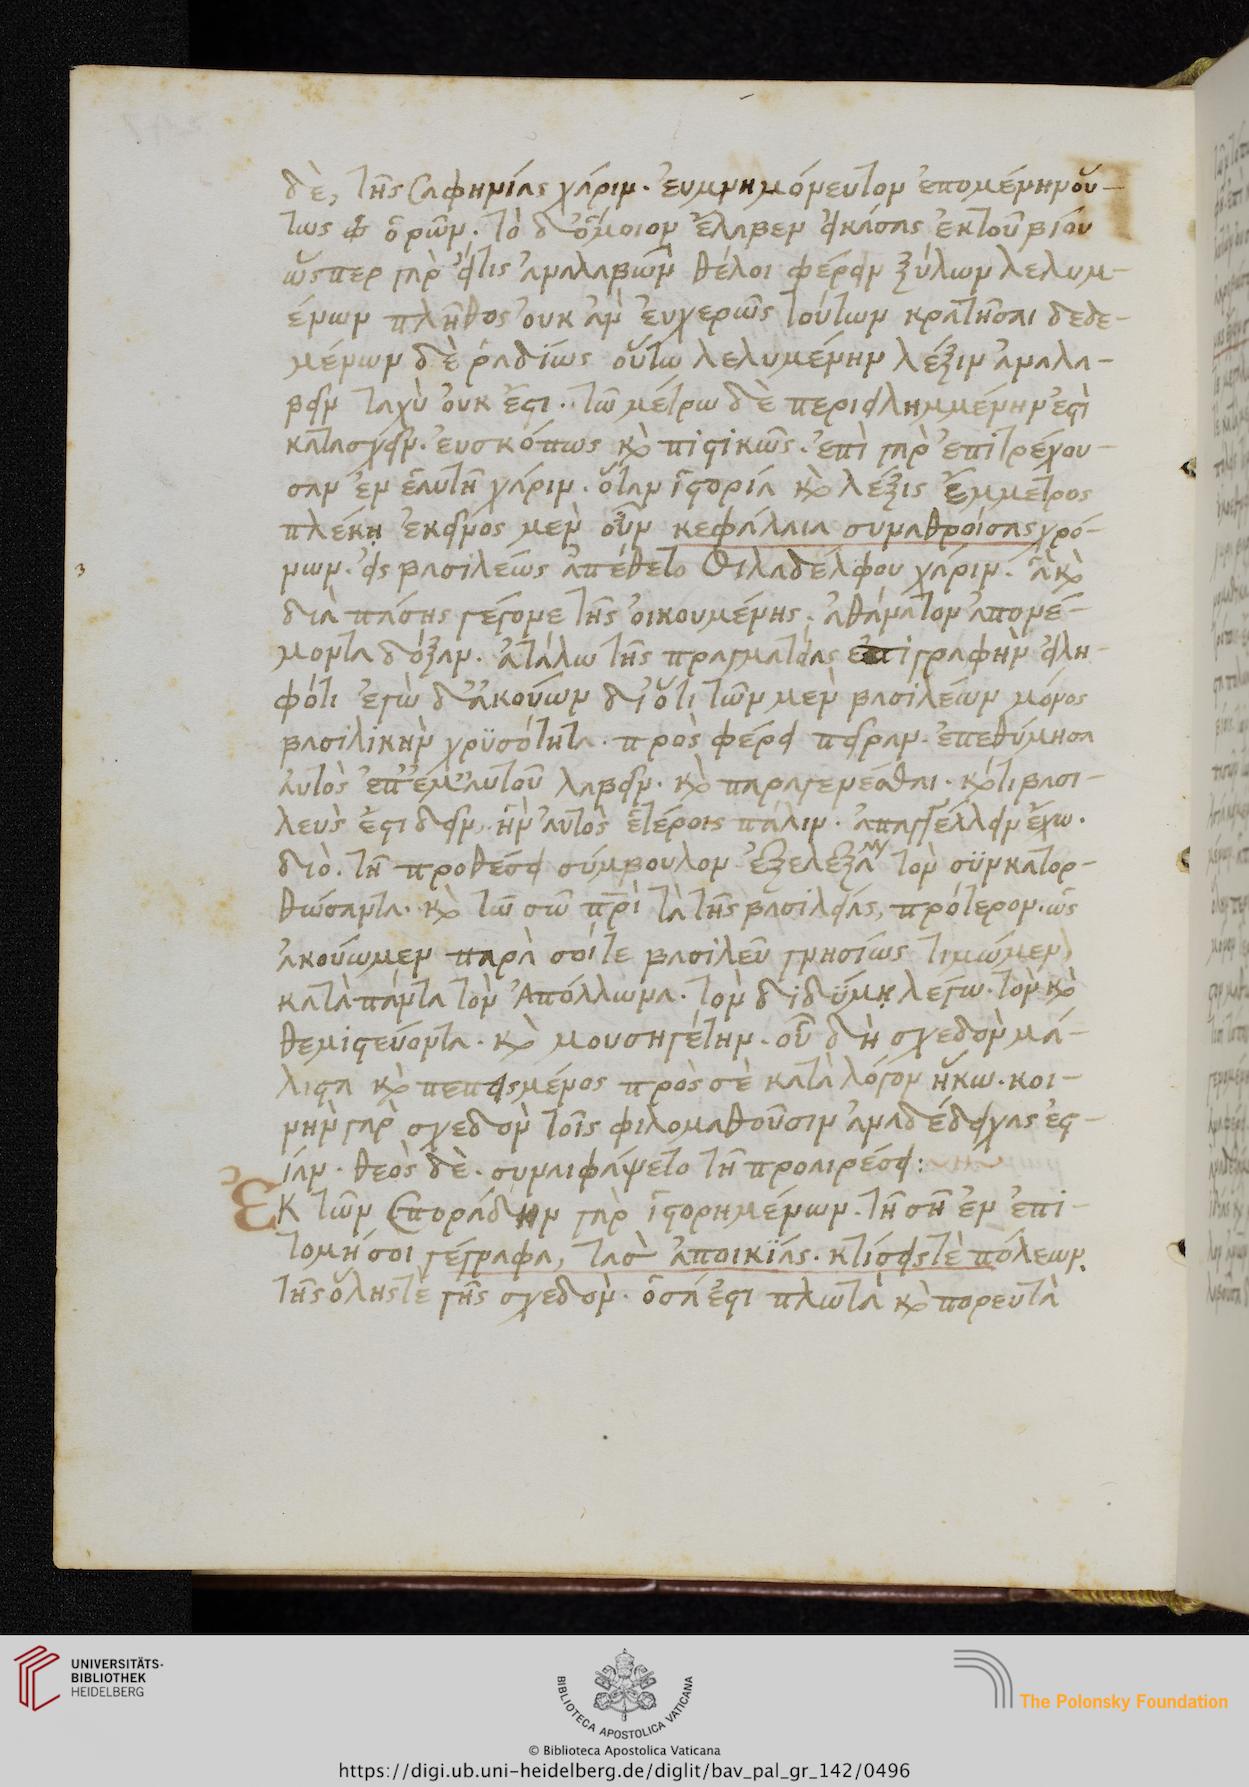 δὲ, τῆς σαφηνίας χάριν. ἐυμνημόνευτον ἐπομένην οὕ-
τως ὁρῶν. τὸ δ' ὅμοιον ἔλαβεν εἰκάσας ἐκ τοῦ βίου
ὥσπερ γὰρ εἴτις ἀναλαβὼν θέλοι φέρειν ξύλων λελυμ-
ένων πλῆθος ὀυκ ἂν ἐυχερῶς τούτων κρατῆσαι δεδε-
μένων δὲ ῥαδίως οὕτω λελυμένην λέξιν ἀναλα-
βεῖν ταχὺ ὀυκ ἔστι. τῶ μέτρω δὲ περιειλημμένην ἐστὶ
κατασχεῖν. ἐυσκόπως καὶ πιστικῶς. ἐπὶ γὰρ ἐπιτρέχου-
σαν ἐν ἑαυτῆ χάριν. ὅταν ἱστορία καὶ λέξις ἔμμετρος
πλέκη ἐκεῖνος μεν οὖν κεφάλαια συναθροίσας χρό-
νων. εἰς βασιλέως ἀπέθετο Φιλαδέλφου χάριν. ἃ καὶ
διὰ πάσης γέγονε τῆς ὀικουμένης. ἀθάνατον ἀπονέ-
μοντα δόξαν. ἀτάλω τῆς πραγματείας ἐπιγραφὴν εἰλη-
φότι ἐγὼ δ' ἀκούων διότι τῶν μεν βασιλέων μόνος
βασιλικὴν χρϋσότητα. προσφέρει πεῖραν. ἐπεθύμησα
ἀυτὸς ἐπ' ἐμαυτοῦ λαβεῖν. καὶ παραγενέσθαι. καὶ τι βασι-
λεύς ἐστι δεῖν, ἣν ἀυτὸς ἑτέροις πάλιν. ἀπαγγέλλειν ἔχω.
διὸ. τῆ προθέσει σύμβουλον ἐξελεξάμην τὸν σϋνκατορ-
θώσαντα. καὶ τῶ σῶ πρὶ τὰ τῆς βασιλείας, πρότερον. ὡς
ἀκούωμεν παρὰ σοί τε βασιλεῦ γνησίως τιμώμεν,
κατὰ πάντα τὸν Ἀπόλλωνα. τὸν διδϋμη λέγω. τὸν καὶ
θεμιστεύοντα. καὶ μουσηγέτην. οὗ δὴ σχεδὸν μά-
λιστα καὶ πεπεισμένος πρὸς σὲ κατὰ λόγον ἥκω. κοι-
νὴν γὰρ σχεδὸν τοῖς φιλομαθοῦσιν ἀναδέδειχας ἑστ-
ίαν. θεὸς δὲ. συναιφάψετο τῆ προαιρέσει:
Ἐκ τῶν Σποράδην γὰρ ἱστορημένων. τῆ σῆ ἐν ἐπι-
τομή σοι γέγραφα, τασ ἀποικΐας. κτίσεις τὲ πόλεων.
τῆς ὅλης τὲ γῆς σχεδὸν. ὅσα ἐστι πλωτὰ καὶ πορευτὰ
UNIVERSITÄTS-
BIBLIOTHEK
HEIDELBERG
BIBLIOTECA APOSTOLICA VATICANA
The Polonsky Foundation
© Biblioteca Apostolica Vaticana
https://digi.ub.uni-heidelberg.de/diglit/bav_pal_gr_142/0496